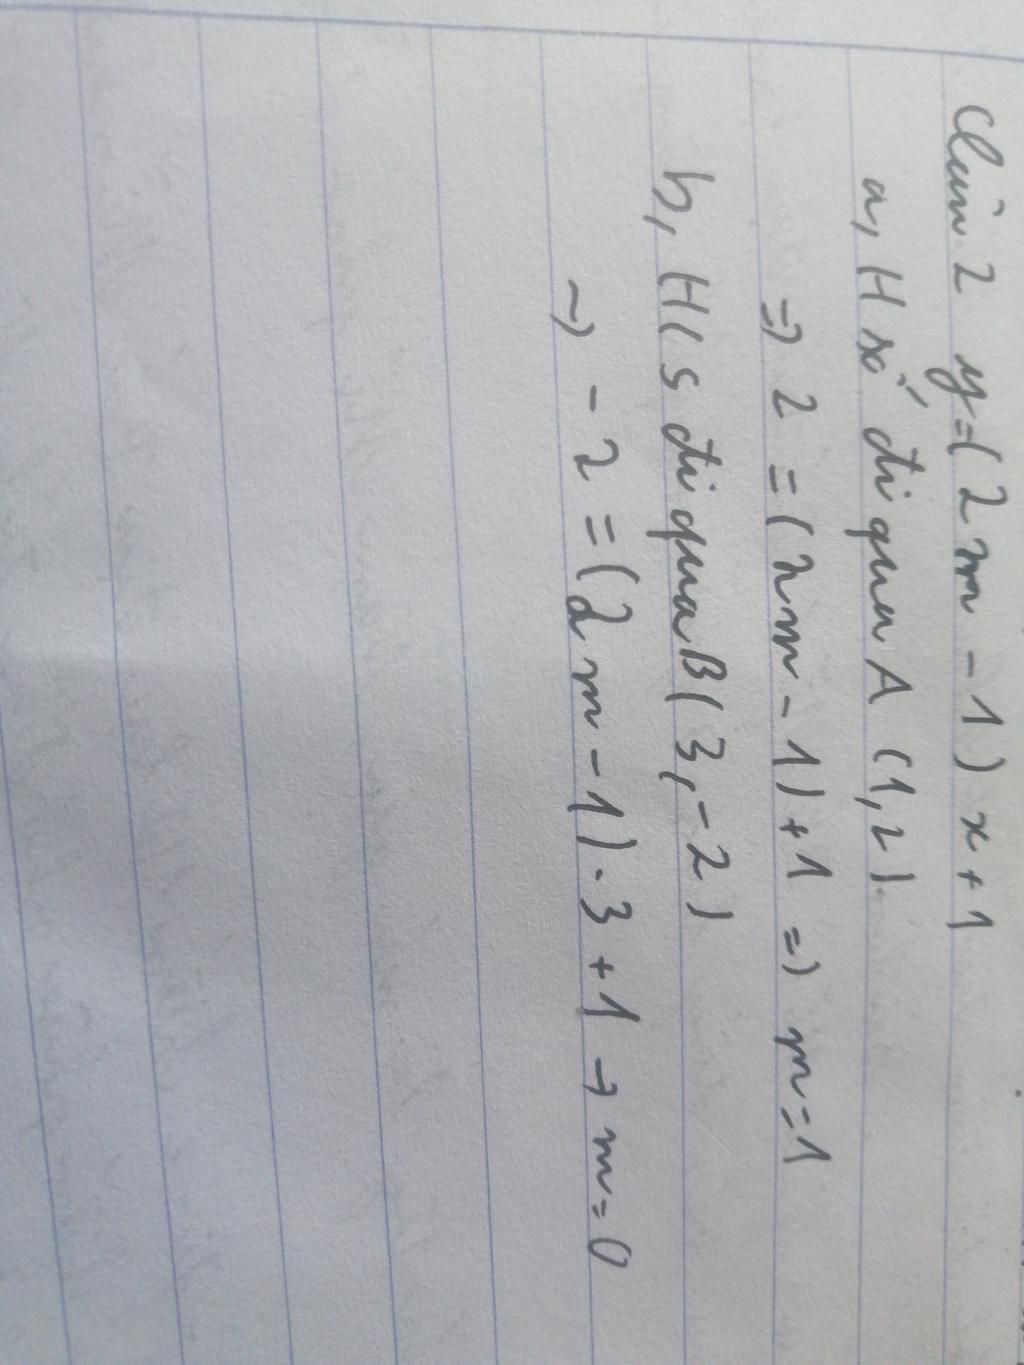 Câu 2 y=(2m-1)x+1
a, H số đi qua A (1,2).
=> 2 = (2m-1)+1 => m=1
b, H(s đi qua B(3,-2)
→ -2 = (2m-1).3+1 → m=0